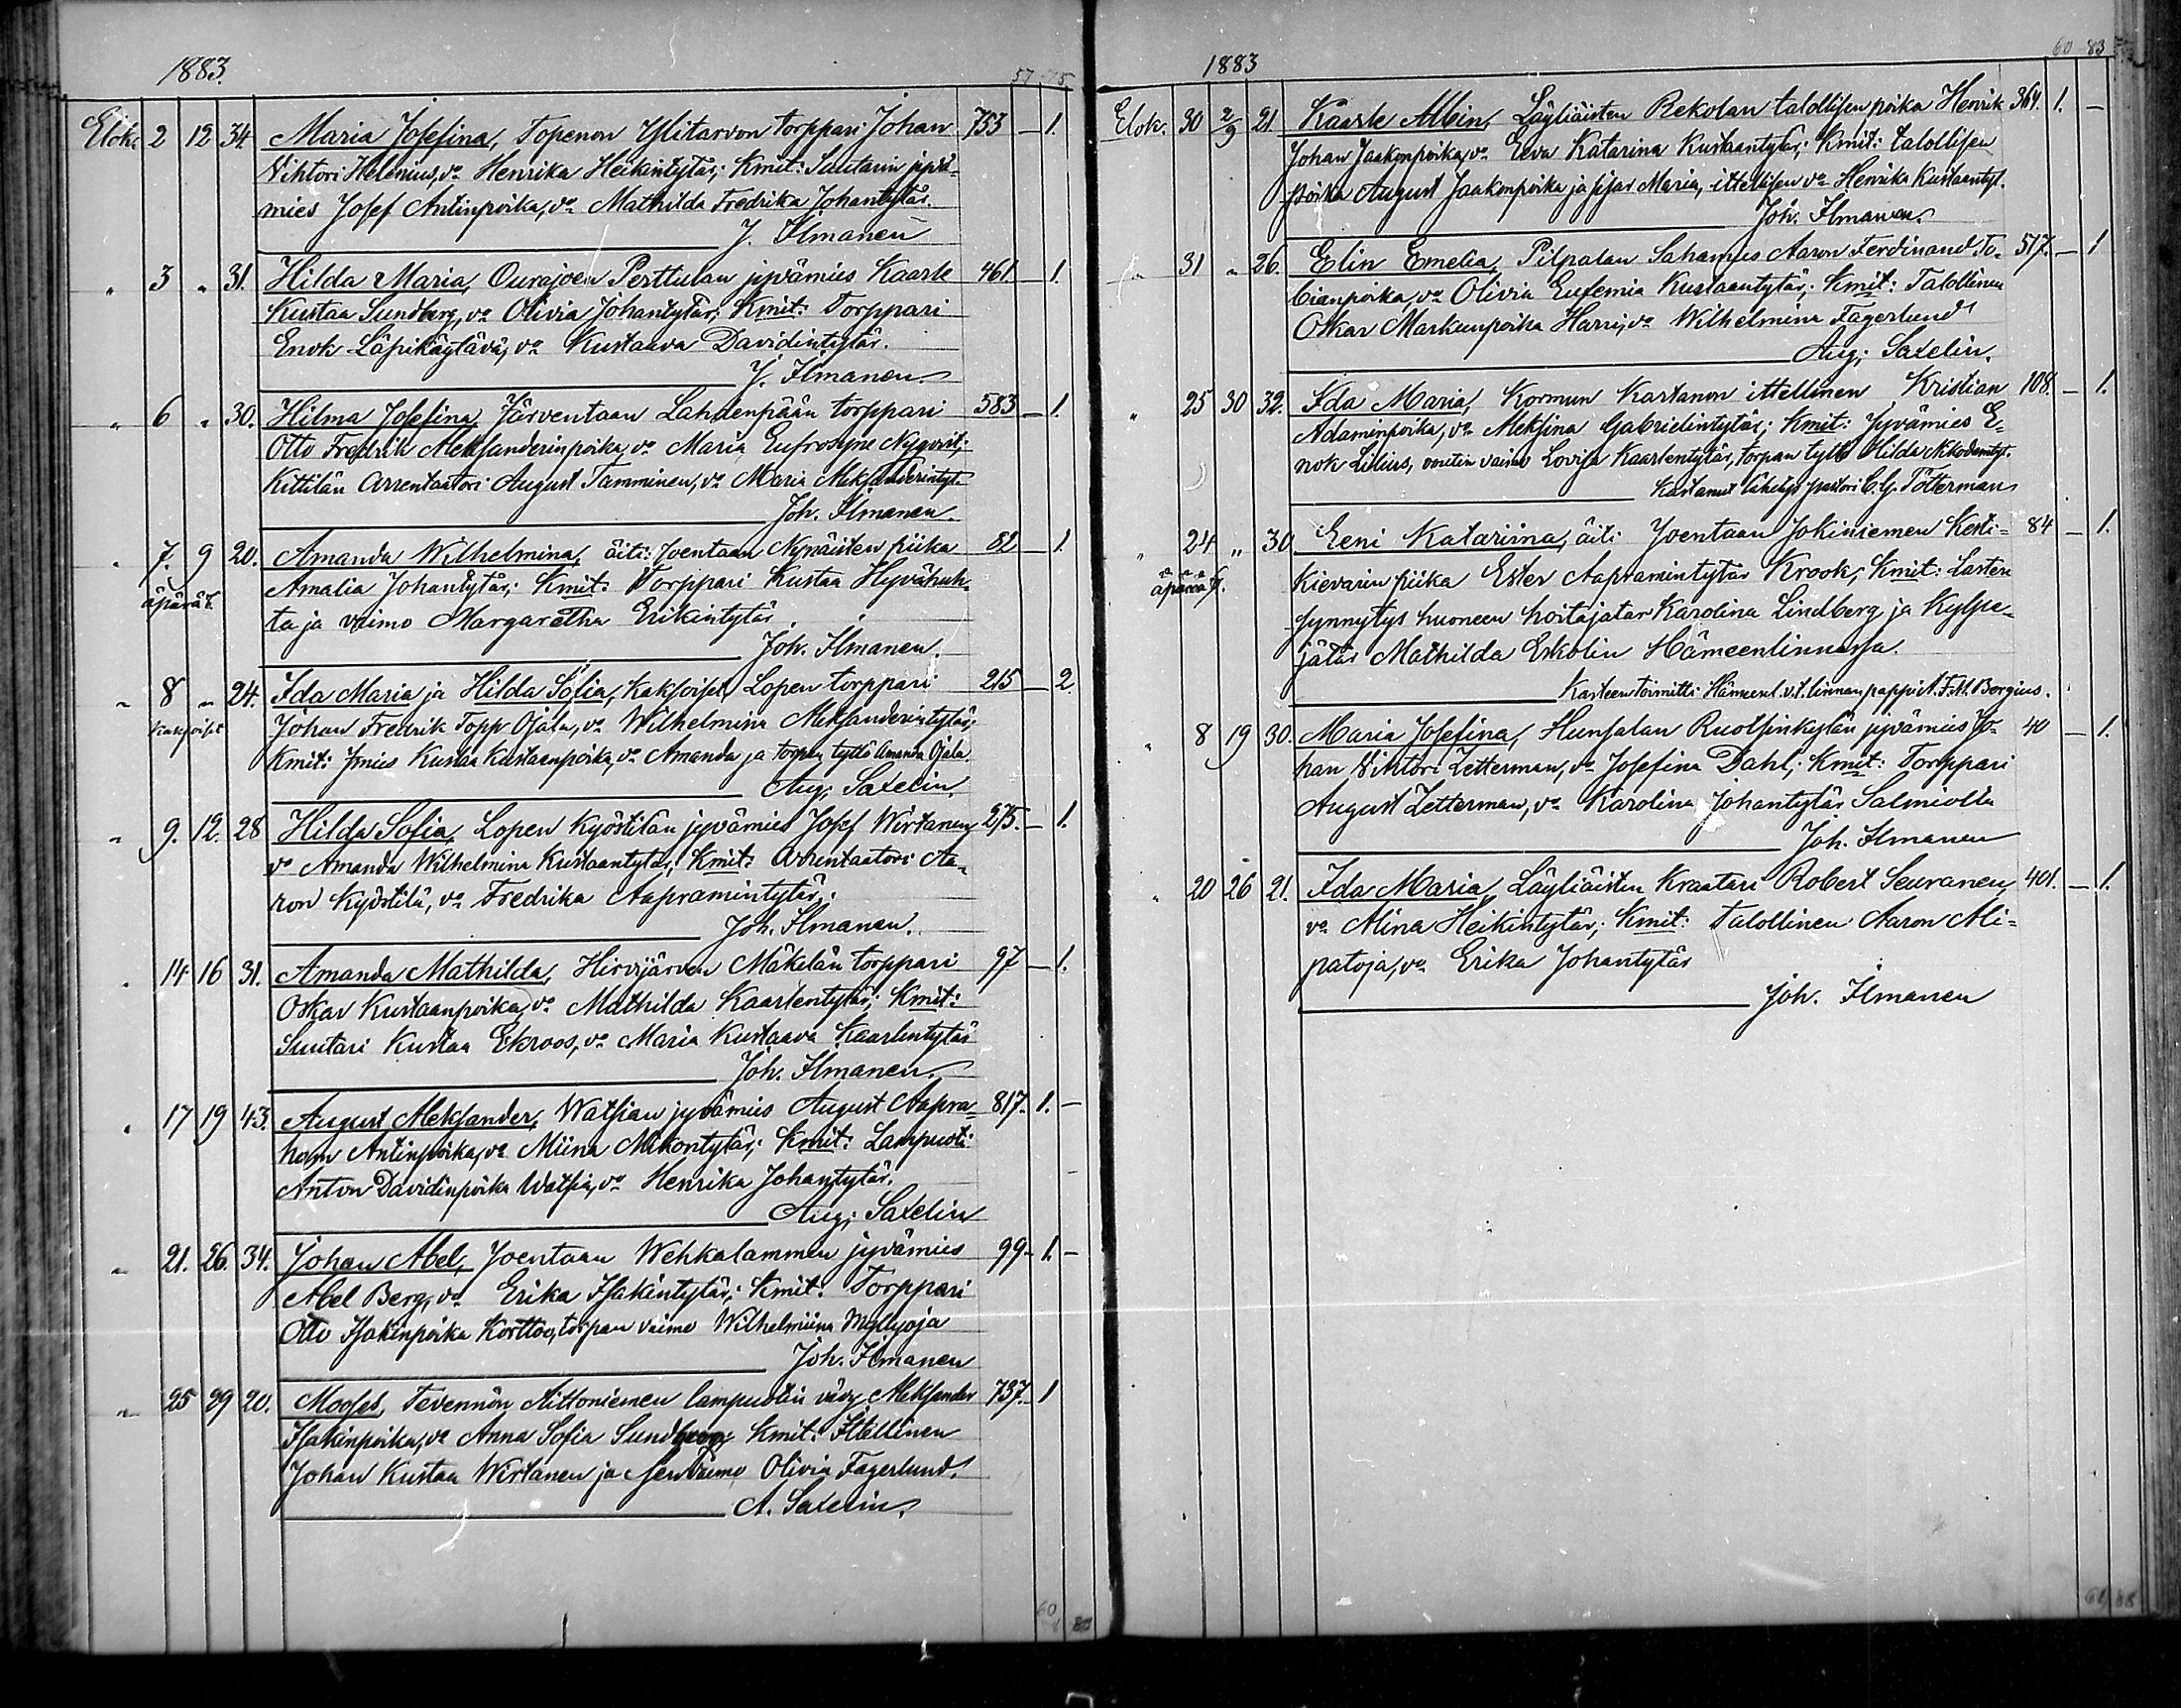 1883.
57 75
Elok. 2 12 34. Maria Josefina, Topenon Ylitarvon torppari Johan 753 — 1.
Vihtori Helenius, vo Henrika Heikintytär; Kmit: Santarin jyvä-
mies Josef Antinpoika, vo Mathilda Fredrika Johantytär.
J. Ilmanen
" 3 " 31. Hilda Maria, Ourajoen Perttulan jyvämies Kaarle 461. — 1.
Kustaa Sundberg, vo Olivia Johantytär; Kmit: Torppari
Enok Läpikäytävä, vo Kustaava Davidintytär.
J. Ilmanen.
" 6 " 30. Hilma Josefina, Järventaan Lahdenpään torppari 583 — 1.
Otto Fredrik Aleksanderinpoika, vo Maria Eufrosyne Nyqvist;
Kittilän Arrentaatori August Tamminen, vo Maria Aleksanderintyt.
Joh. Ilmanen.
" 7. 9 20. Amanda Wilhelmina, äiti: Joentaan Nynäisten piika 82 — 1.
äpärä t.
Amalia Johantytär; Kmit: Torppari Kustaa Hyvähuh-
ta ja vaimo Margaretha Erikintytär
Joh. Ilmanen.
" 8 " 24. Ida Maria ja Hilda Sofia, kaksoiset, Lopen torppari 215 — 2
Kaksoiset
Johan Fredrik Topp Ojala, vo Wilhelmina Aleksanderintytär;
Kmit: Jmies Kustaa Kustaanpoika, vo Amanda ja torpan tyttö Amanda Ojala.
Aug. Saxelin.
" 9. 12. 28 Hilda Sofia, Lopen Kyöstilän jyvämies Josef Wirtanen, 275. — 1.
vo Amanda Wilhelmina Kustaantytär; Kmit: Arrentaatori Aa-
ron Kyöstilä, vo Fredrika Aapramintytär.
Joh. Ilmanen.
" 14 16 31. Amanda Mathilda, Hirvijärven Mäkelän torppari 97 — 1.
Oskar Kustaanpoika, vo Mathilda Kaarlentytär; Kmit:
Suutari Kustaa Ekroos, vo Maria Kustaava Kaarlentytär
Joh. Ilmanen.
" 17 19 43. August Aleksander, Watsian jyvämies August Aapra- 817. 1. —
ham Antinpoika, vo Miina Mikontytär; Kmit: Lampuoti
Anton Davidinpoika Watsia, vo Henrika Johantytär.
Aug. Saxelin
" 21. 26. 34. Johan Abel, Joentaan Wehkalammen jyvämies 99 — 1. —
Abel Berg, vo Erika Isakintytär; Kmit: Torppari
Otto Isakinpoika Korttoo, torpan vaimo Wilhelmiina Myllyoja
Joh. Ilmanen
" 25 29 20. Mooses, Tevennön Aittoniemen lampuotin vävy Aleksander 737. — 1
Isakinpoika, vo Anna Sofia Sundberg Kmit: Itellinen
Johan Kustaa Wirtanen ja sen vaimo Olivia Fagerlund.
A. Saxelin.
60
1883
60 83
Elok. 30 2/9 21 Kaarle Albin, Läyliäisten Rekolan talollisen poika Henrik 364. 1. —
Johan Jaakonpoika, vo Eeva Katarina Kustaantytär; Kmit: talollisen
poika August Jaakonpoika ja sisar Maria, ittellisen vo Henrika Kustaantyt.
Joh. Ilmanen.
" 31 " 26. Elin Emelia, Pilpalan Sahamies Aaron Ferdinand To- 517. — 1
bianpoika, vo Olivia Eufemia Kustaantytär; Kmit: Talollinen
Oskar Markunpoika Harri, vo Wilhelmina Fagerlund
Aug. Saxelin.
" 25 30 32. Ida Maria, Kormun Kartanon ittellinen Kristian 108. — 1.
Adaminpoika, vo Aleksina Gabrielintytär; Kmit: Jyvämies E-
nok Lilius, vaimo Lovisa Kaarlentytär, torpan tyttö Hilda Nikodemityt.
Kastanut lähetys pastori C. G. Tötterman
" 24 " 30. Eeni Katariina, äiti Joentaan Jokiniemen Kesti- 84 — 1.
äpärä t.
kievarin piika Ester Aapramintytär Krook; Kmit: Lasten
synnytys huoneen hoitajatar Karolina Lindberg ja Kylpe-
jätär Mathilda Eskolin Hämeenlinnassa.
Kasteen toimitti Hämeenl. v.t. linnan pappi A. F. M. Borgius.
" 8 19 30. Maria Josefina, Hunsalan Ruotsinkylän jyvämies Jo- 40 — 1.
han Vihtori Zetterman, vo Josefina Dahl; Kmit: Torppari
August Zetterman, vo Karolina Johantytär Salmiolta
Joh. Ilmanen
" 20 26 21. Ida Maria, Läyliäisten Kraatari Robert Seuranen, 401. — 1.
vo Miina Heikintytär; Kmit: Talollinen Aaron Ali-
patoja, vo Erika Johantytär
Joh. Ilmanen
61 88